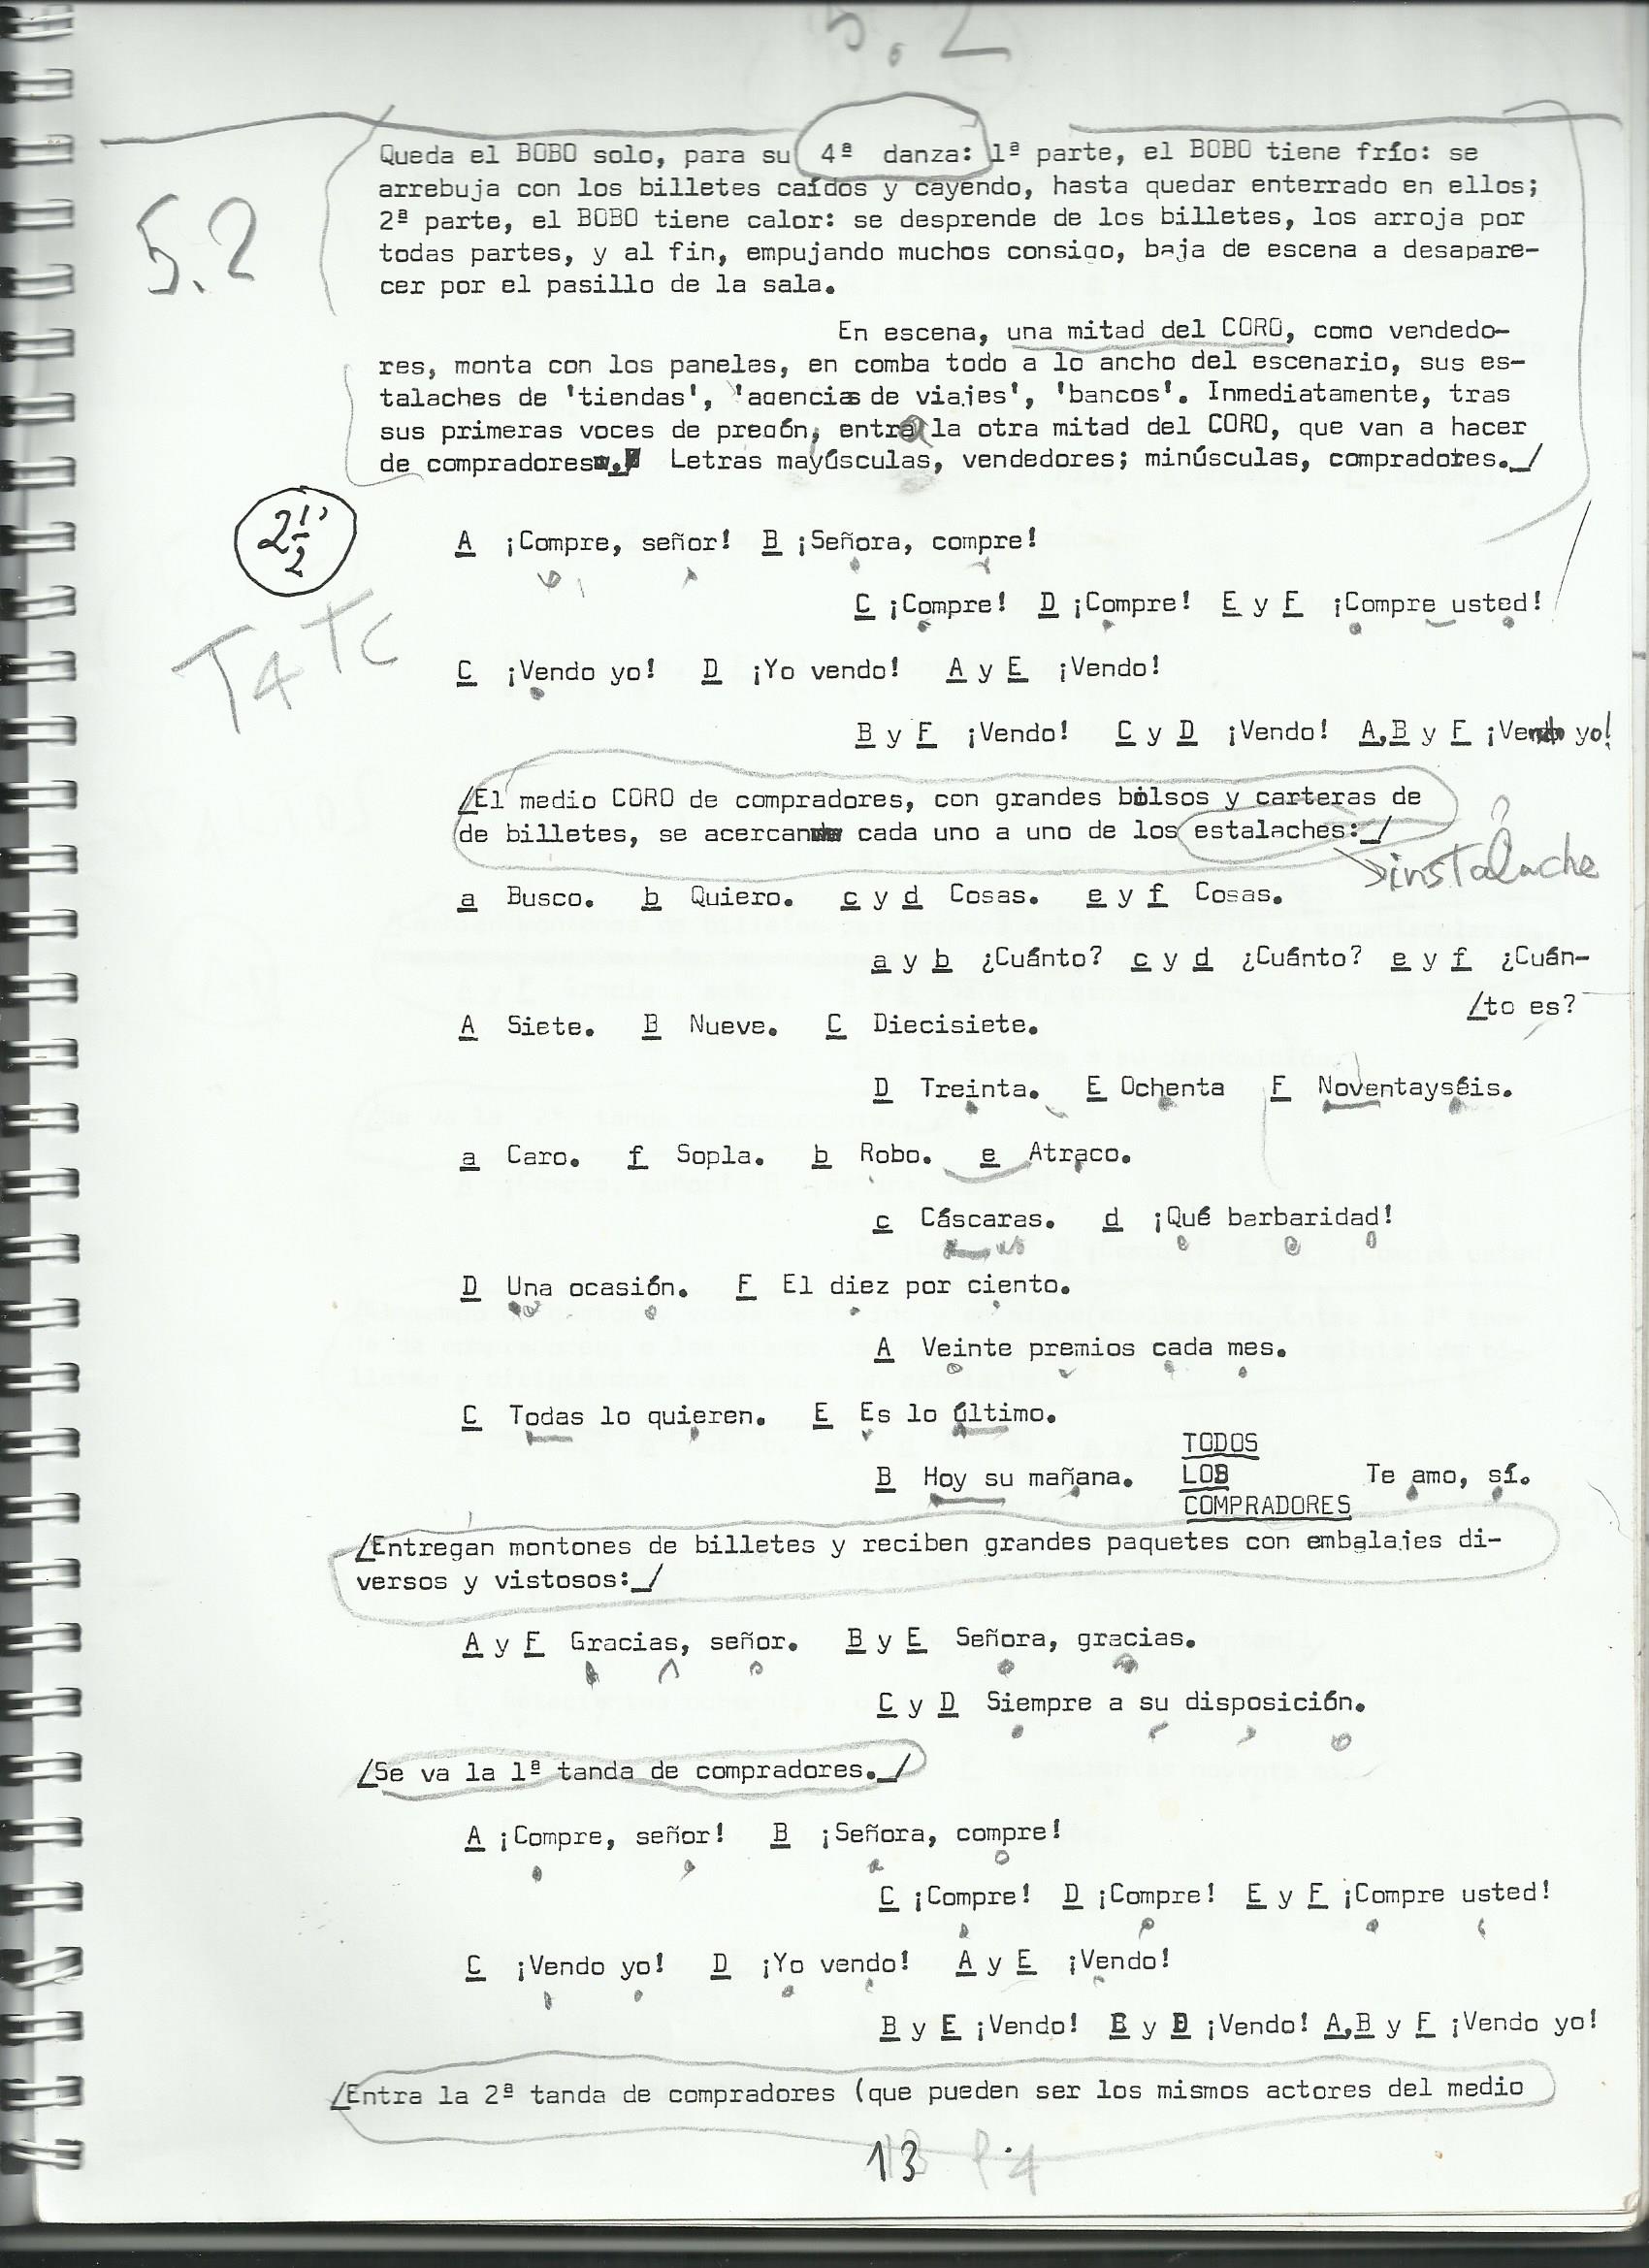 5.2
Queda el BOBO solo, para su 4ª danza: 1ª parte, el BOBO tiene frío: se
arrebuja con los billetes caídos y cayendo, hasta quedar enterrado en ellos;
5.2
2ª parte, el BOBO tiene calor: se desprende de los billetes, los arroja por
todas partes, y al fin, empujando muchos consigo, baja de escena a desapare-
cer por el pasillo de la sala.
En escena, una mitad del CORO, como vendedo-
res, monta con los paneles, en comba todo a lo ancho del escenario, sus es-
talaches de 'tiendas', 'agencias de viajes', 'bancos'. Inmediatamente, tras
sus primeras voces de pregón, entra la otra mitad del CORO, que van a hacer
de compradores. Letras mayúsculas, vendedores; minúsculas, compradores._/
2 1/2'
A ¡Compre, señor! B ¡Señora, compre!
C ¡Compre! D ¡Compre! E y F ¡Compre usted!
T4 TC
C ¡Vendo yo! D ¡Yo vendo! A y E ¡Vendo!
B y F ¡Vendo! C y D ¡Vendo! A,B y F ¡Vendo yo!
/El medio CORO de compradores, con grandes bolsos y carteras de
de billetes, se acercan cada uno a uno de los estalaches:_/
instalache
a Busco. b Quiero. c y d Cosas. e y f Cosas.
a y b ¿Cuánto? c y d ¿Cuánto? e y f ¿Cuán-
/to es?
A Siete. B Nueve. C Diecisiete.
D Treinta. E Ochenta F Noventayséis.
a Caro. f Sopla. b Robo. e Atraco.
c Cáscaras. d ¡Qué barbaridad!
D Una ocasión. F El diez por ciento.
A Veinte premios cada mes.
C Todas lo quieren. E Es lo último.
B Hoy su mañana. TODOS LOS COMPRADORES Te amo, sí.
/Entregan montones de billetes y reciben grandes paquetes con embalajes di-
versos y vistosos:_/
A y F Gracias, señor. B y E Señora, gracias.
C y D Siempre a su disposición.
/Se va la 1ª tanda de compradores._/
A ¡Compre, señor! B ¡Señora, compre!
C ¡Compre! D ¡Compre! E y F ¡Compre usted!
C ¡Vendo yo! D ¡Yo vendo! A y E ¡Vendo!
B y E ¡Vendo! E y D ¡Vendo! A,B y F ¡Vendo yo!
/Entra la 2ª tanda de compradores (que pueden ser los mismos actores del medio
13